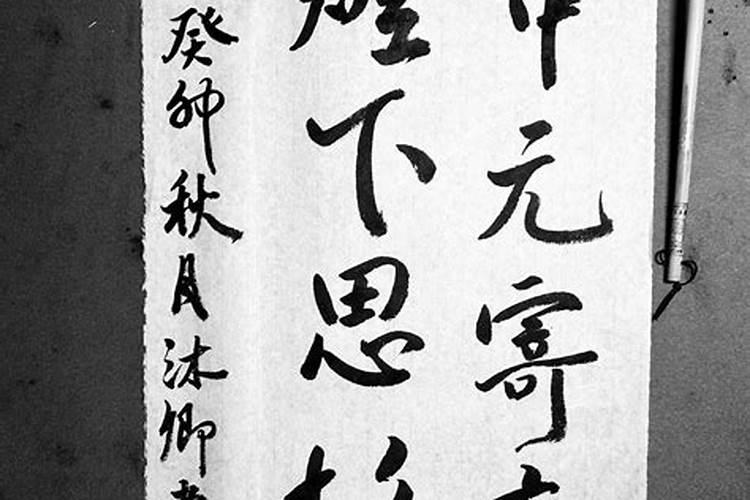 中元寄
下思
癸卯秋月沐卿